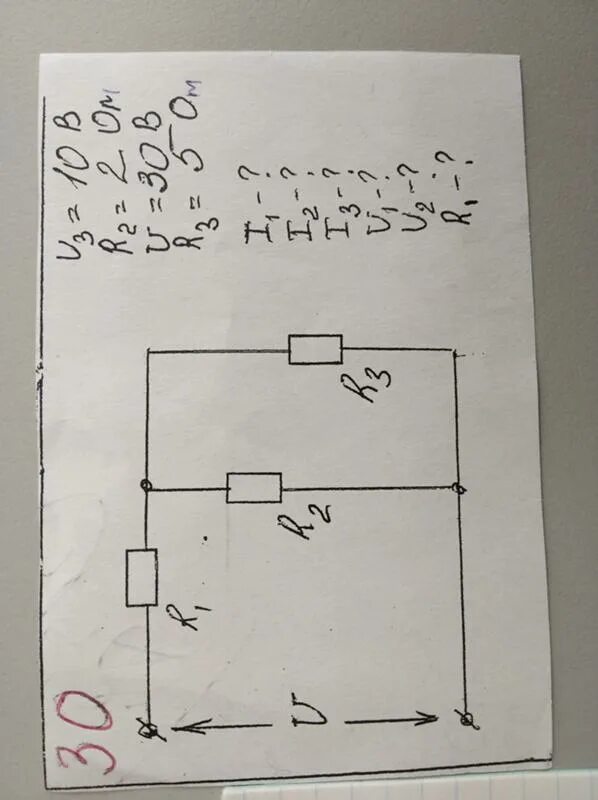 30
U3 = 10 В
R2 = 2 Ом
U = 30 В
R3 = 5 Ом
I1 - ?
I2 - ?
I3 - ?
U1 - ?
U2 - ?
R1 - ?
R1
R2
R3
U